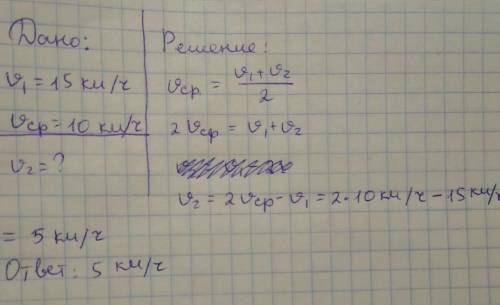 Дано:
υ₁ = 15 км/ч
υср = 10 км/ч
υ₂ = ?
Решение:
υср = (υ₁ + υ₂)/2
2 υср = υ₁ + υ₂
υ₂ = 2υср - υ₁ = 2·10 км/ч - 15 км/ч
= 5 км/ч
Ответ: 5 км/ч